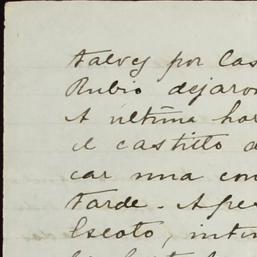 talvez por las
Rubio dejaron
A última hor
el castillo d
car una con
tarde. Apes
Escoto, intim